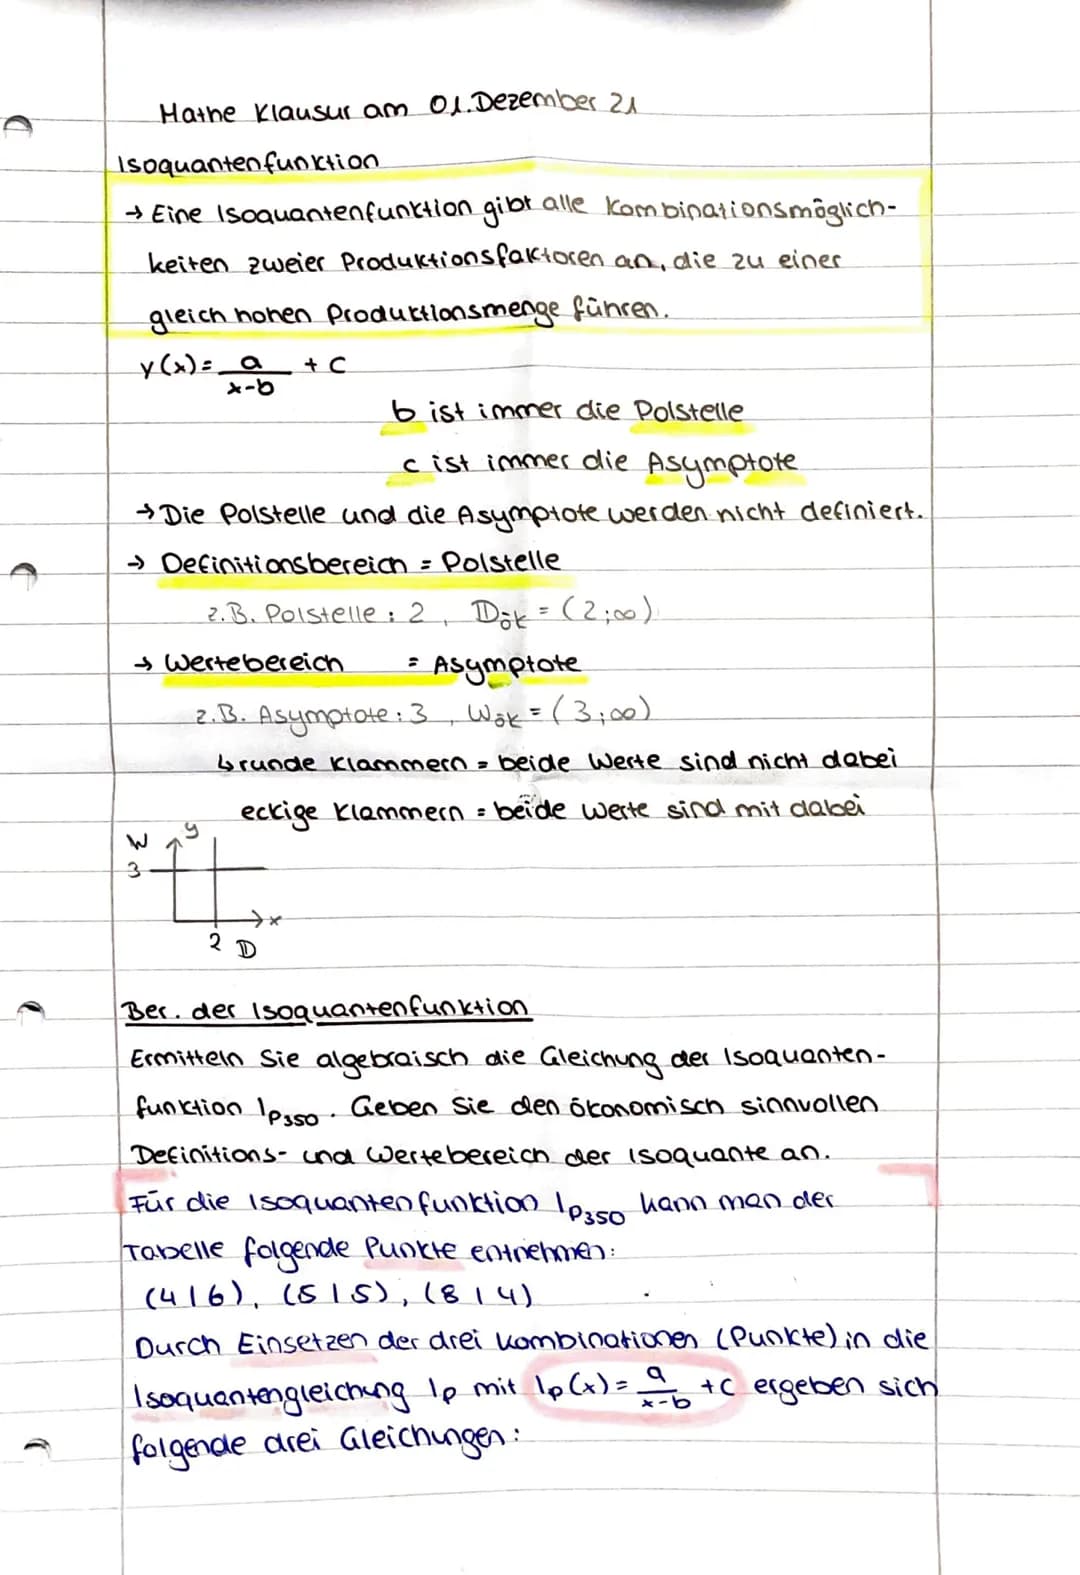 Mathe Klausur am 01.Dezember 21
Isoquantenfunktion
→ Eine Isoquantenfunktion gibt alle Kombinationsmöglich-
keiten zweier Produktionsfaktoren an, die zu einer
gleich hohen Produktionsmenge führen.
y(x)= a/(x-b) + c
b ist immer die Polstelle
c ist immer die Asymptote
→ Die Polstelle und die Asymptote werden nicht definiert.
→ Definitionsbereich = Polstelle
z.B. Polstelle : 2 , 𝔻ök = (2;∞)
→ Wertebereich = Asymptote
z.B. Asymptote : 3 , Wök = (3;∞)
↳ runde Klammern = beide Werte sind nicht dabei
eckige Klammern = beide Werte sind mit dabei
W y
3
x
2 𝔻
Ber. der Isoquantenfunktion
Ermitteln Sie algebraisch die Gleichung der Isoquanten-
funktion Ip350. Geben Sie den ökonomisch sinnvollen
Definitions- und Wertebereich der Isoquante an.
Für die Isoquantenfunktion Ip350 kann man der
Tabelle folgende Punkte entnehmen:
(4|6), (5|5), (8|4)
Durch Einsetzen der drei Kombinationen (Punkte) in die
Isoquantengleichung Ip mit Ip(x)= a/(x-b) +c ergeben sich
folgende drei Gleichungen: